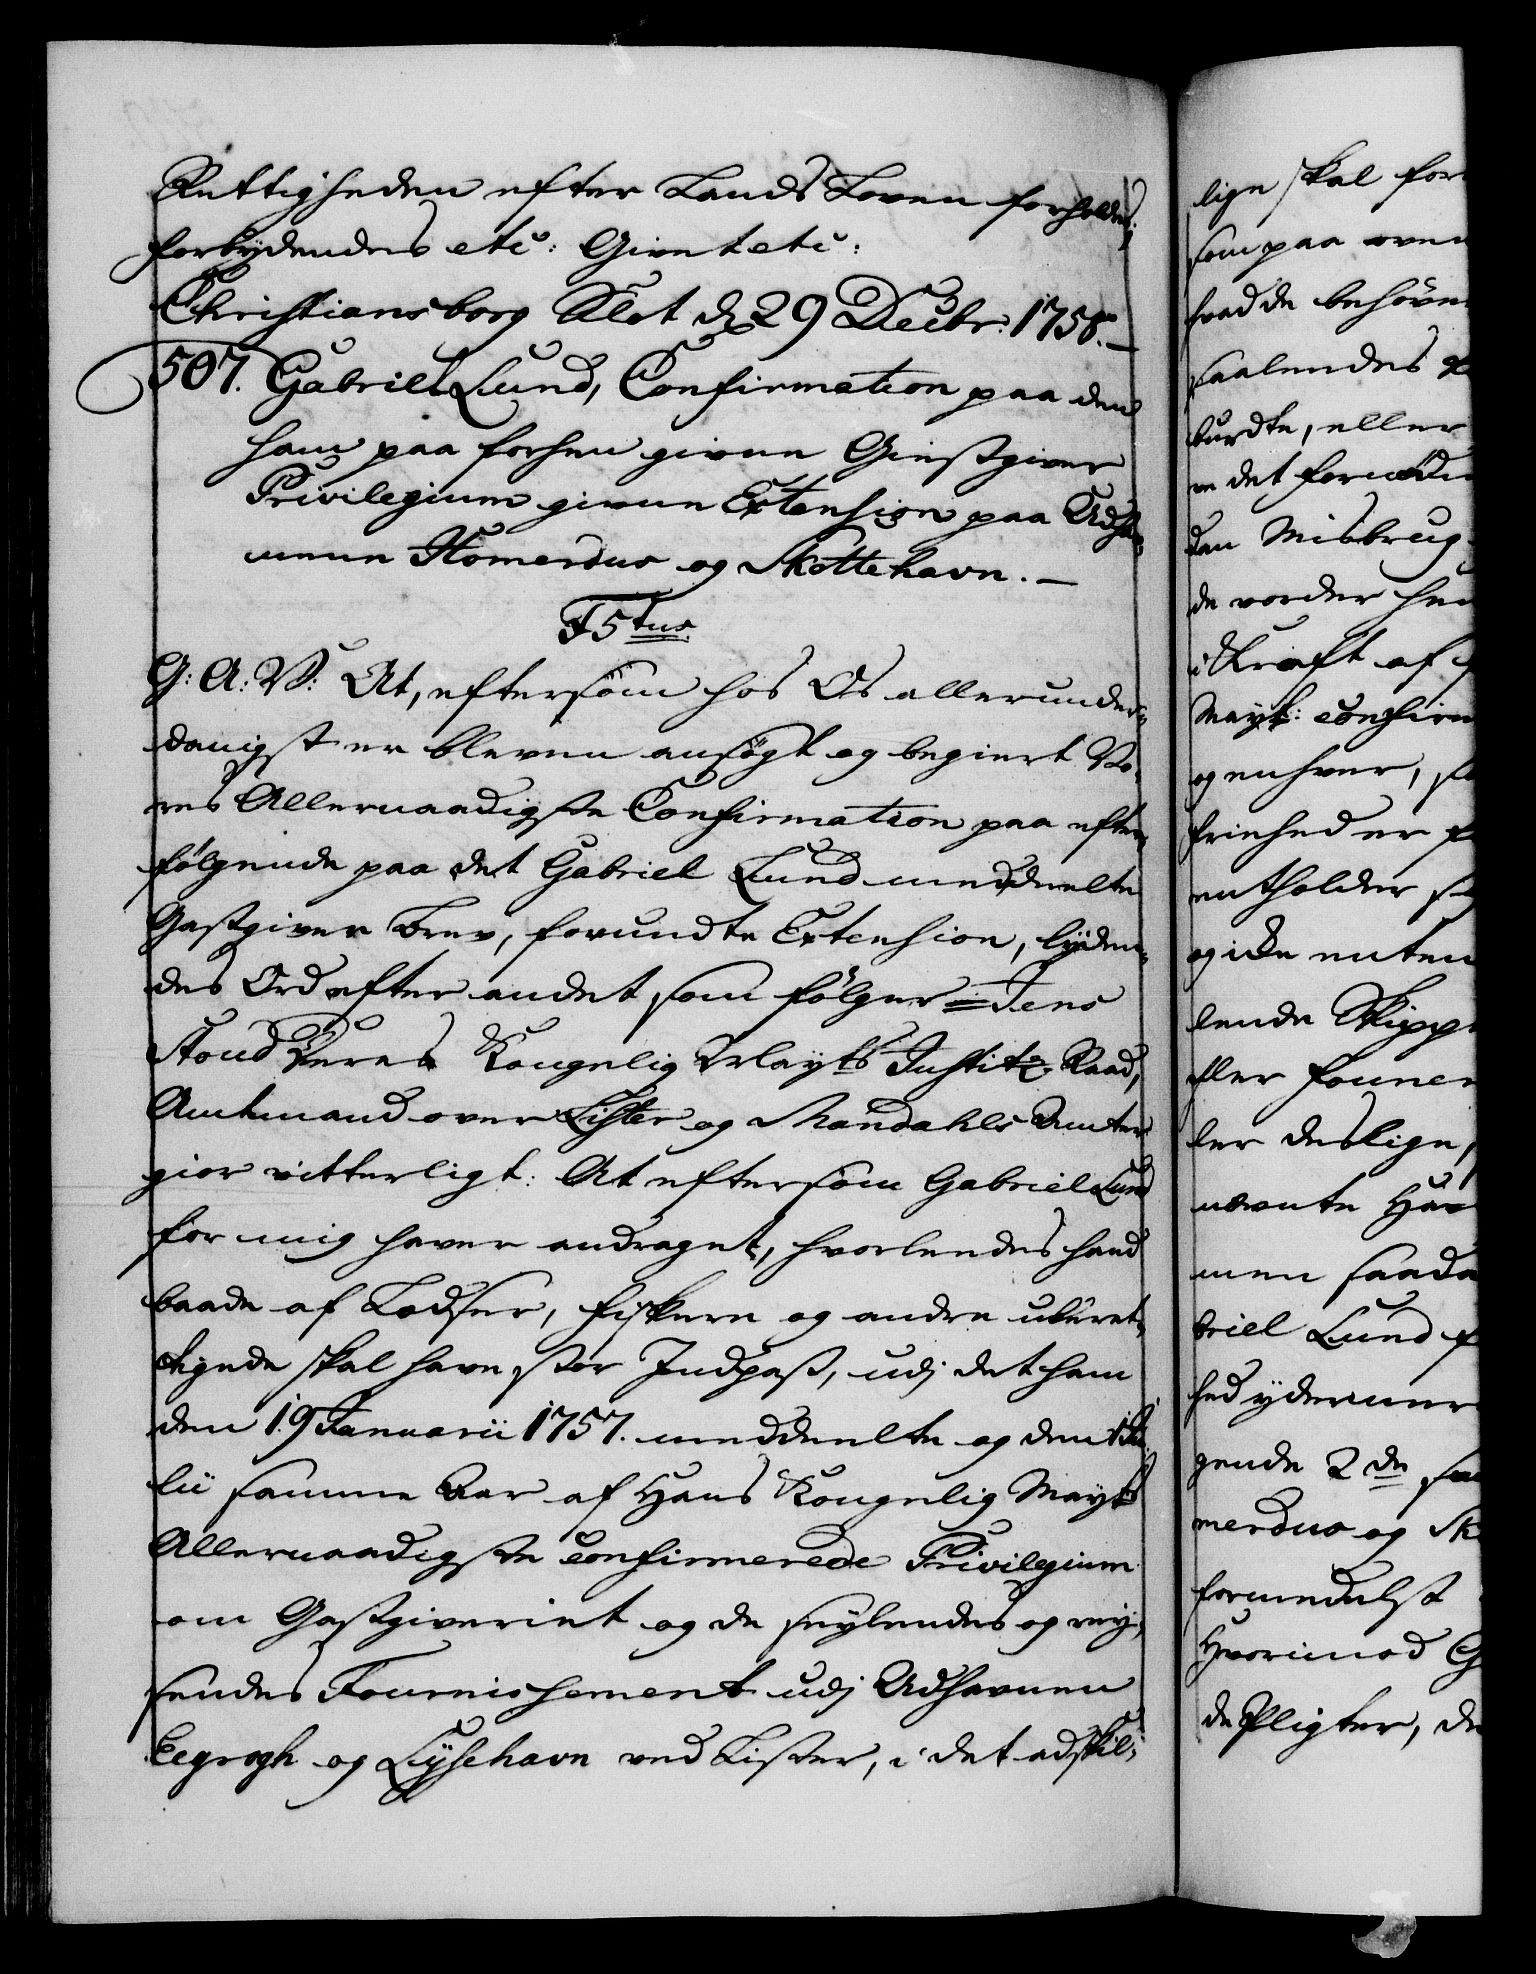 Rettigheden efter Lands Loven forholdes,
forbydendes etc: Givet etc:
Christiansborg Slot d 29 Decbr: 1758.—
507. Gabriel Lund, Confirmation paa den
ham paa forhen given Giestgiver
Privilegium given Extension paa Udhav-
nene Homerdus og Skottehavn.—
F5tus
G: A: V: At, eftersom hos Os allerunder-
danigst er bleven ansøgt og begiert Vo-
res Allernaadigste Confirmation paa efter-
følgende paa det Gabriel Lund meddeelte
Gastgiver Brev, forundte Extension, lyden-
des Ord efter andet som følger = Jens
Stoud Deres Kongelig Mayts Justitz Raad,
Amtmand over Lister og Mandahls Amter
giør vitterligt: At eftersom Gabriel Lund
for mig haver andraget, hvorlendes hand
baade af Lodser, fiskere og andre uberet-
tigede skal have stor Indpass, udj det ham
den 19 Januarii 1757. meddeelte og den 1 Ju-
lii samme Aar af Hans Kongelig Mayts
Allernaadigste confirmerede Privilegium
om Gastgiveriet og de seylendes og rey-
sendes Fournishement udj Udhavnen
Eegrogh og Lysehavn ved Lister, i det adskil-
lige skal for
som paa oven
hvad de behøve
saalendes
burdte, eller
det fornødn
dan Misbrug
de vorder her
i Kraft af
Mayt: confirm
og enhver, s
friehed er f
entholder s
og icke enten
lende Skipp
eller fourner
ler deslige,
nævnte Hav
men saada
briel Lund f
hed ydermer
gende 2de sm
merdus og Sk
formedelst
Hvorimod G
de Pligter, de